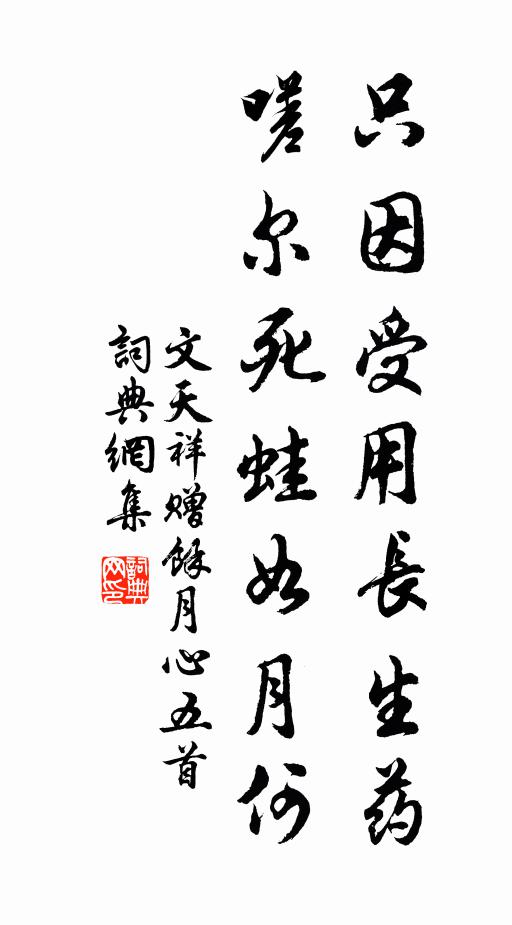 只因受用長生药
嗟尔死蛙如月何
文天祥赠餘月心五首
詞典網集
詞典网印